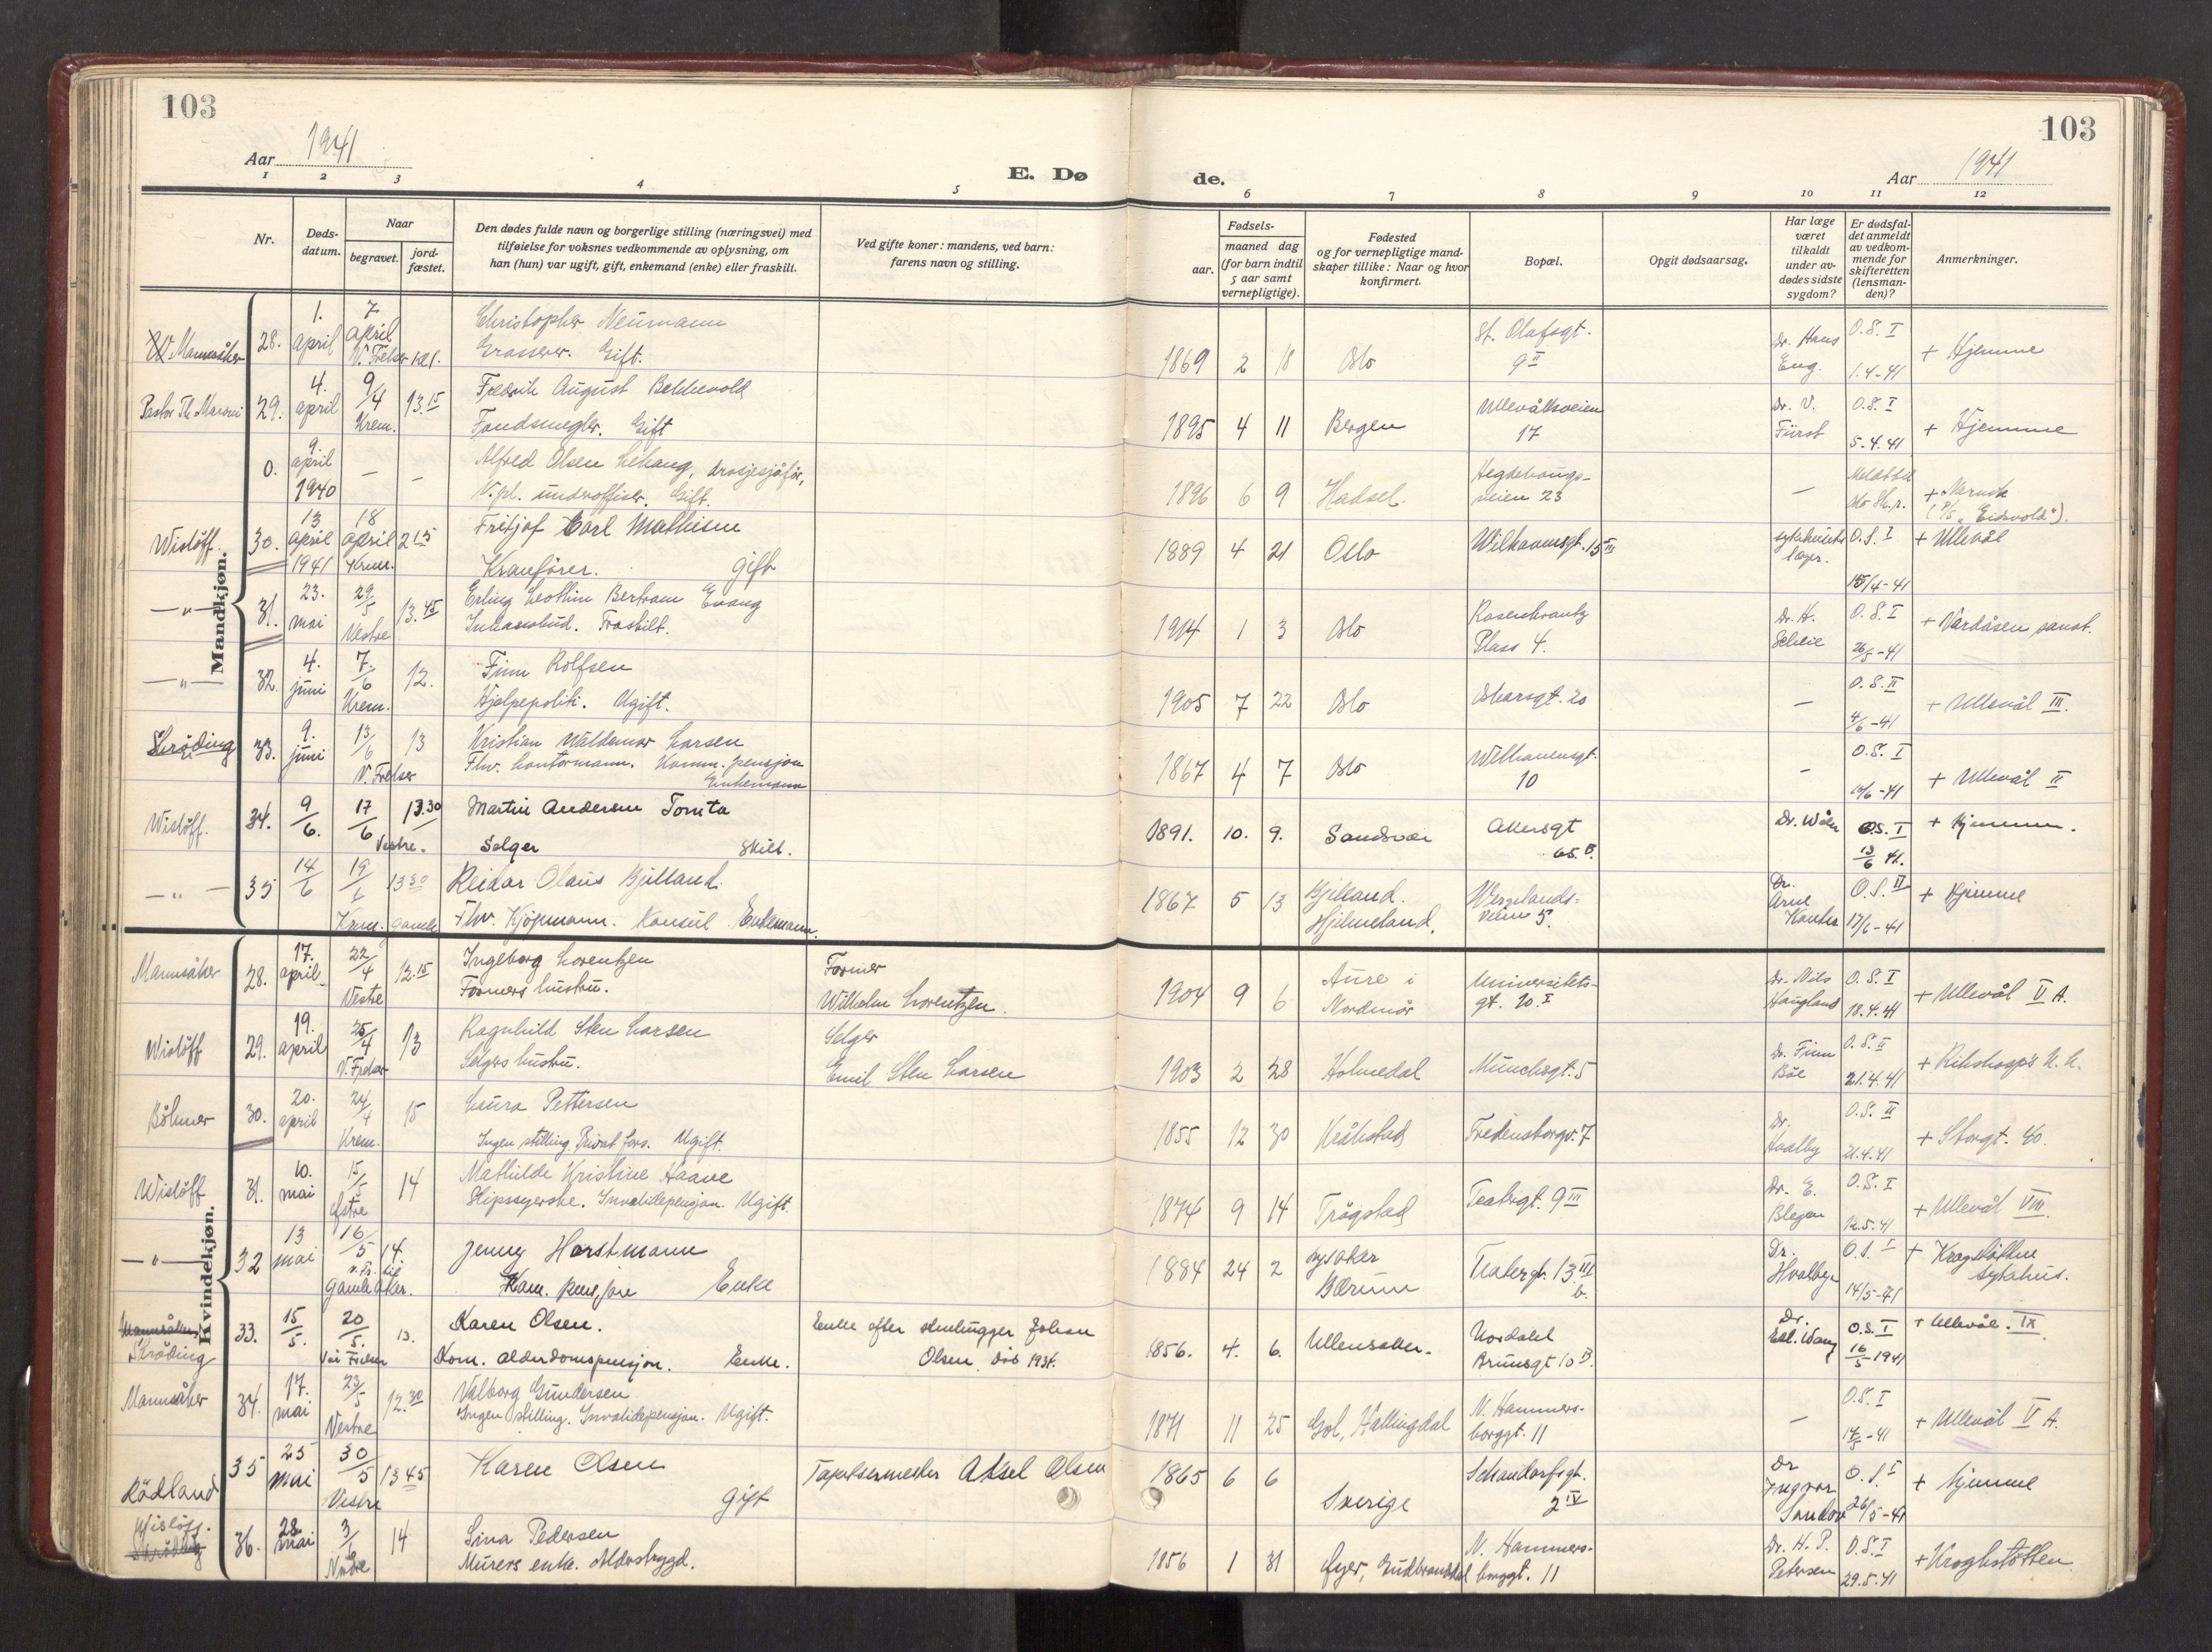 103
Aar 1941
E. Dø
1
2
3
4
5
Nr.
Døds-
datum.
Naar
begravet.
jord-
fæstet.
Den dødes fulde navn og borgerlige stilling (næringsvei) med
tilføielse for voksnes vedkommende av oplysning, om
han (hun) var ugift, gift, enkemand (enke) eller fraskilt.
Ved gifte koner: mandens, ved barn:
farens navn og stilling.
103
de.
Aar 1941
6
7
8
9
10
11
12
Fødsels-
aar.
maaned dag
(for barn indtil
5 aar samt
vernepligtige).
Fødested
og for vernepligtige mand-
skaper tillike: Naar og hvor
konfirmert.
Bopæl.
Opgit dødsaarsag.
Har læge
været
tilkaldt
under av-
dødes sidste
sygdom?
Er dødsfal-
det anmeldt
av vedkom-
mende for
skifteretten
(lensman-
den)?
Anmerkninger.
Mandkjøn.
Mannsåker 28. 1. april 7 april V. Frelser Christopher Neumann
Grosserer. Gift.
1869 2 18 Oslo St. Olafsgt. 9 II Dr. Hans Eng. O.S. I 1.4-41 + Hjemme
Pastor 29. 4. april 9/4 Krem. 13.15 Fredrik August Bekkevold
Fondsmegler. Gift
1895 4 11 Bergen Ullevålsveien 17 Dr. V. Fürst O.S. I 5.4.41 + Hjemme
0. 9. april 1940 — — Alfred Olsen drosjesjåfør,
V.pl. underoffiser. Gift.
1896 6 9 Hadsel. Hegdehaugs-
veien 23 — + Narvik
(P/S „Eidsvold").
Wisløff. 30. 13 april 1941 18 april Krem. 215 Fritjof Carl Mathisen
Kranfører. gift
1889 4 21 Oslo Welhavensgt. 15 III O.S. I 15/4-41 + Ullevål
—"— 31. 23. mai 29/5 Vestre 13.45 Erling Bertram Evang
Fraskilt.
1914 1 3 Oslo Rosenkrantz
Plass 4. Dr. H. O.S. I 26/5-41 + Vardåsen sanat.
—"— 32. 4. juni 7./6 Krem. 12. Finn Rolfsen
Hjelpepoliti. Ugift.
1905 7 22 Oslo Oskarsgt. 20 — O.S. II 4/6-41 + Ullevål III.
Skrøding 33. 9. juni 13/6 V. Frelser 13 Kristian Waldemar Larsen
Fhv. kontormann. Komm. pensjon
Enkemann
1867 4 7 Oslo Welhavensgt.
10 — O.S. I 10/6-41 + Ullevål II
Wisløff. 34. 9/6. 17/6 Vestre. 13.30 Martin Andersen Tomta
Selger skilt.
1891. 10. 9. Sandsvær Akersgt
65. O.S. I 13/6 41. + Hjemme.
—"— 35 14/6 19/6 Krem. gamle 1330 Reidar Olaus Gjilland.
Fhv. Kjøpmann. Konsul. Enkemann.
1867 5 13 Gjilland.
Hjelmeland. Wergelands-
veien 5. Dr. Arne O.S. II 17/6-41 + Hjemme
Kvindekjøn.
Mannsåker 28. 17. april 22/4 Vestre 12.15 Ingeborg Lorentzen
Formers hustru. Former
Wilhelm Lorentzen.
1904 9 6 Aure i
Nordmør Universitets-
gt. 20. I Dr. Nils Haugland O.S. I 18.4.41 + Ullevål V A.
Wisløff 29. 19. april 25/4 V. Frelser 13 Ragnhild Sten Larsen
Selgers hustru. Selger
Emil Sten Larsen
1903 2 28 Holmedal Munchsgt. 5 Dr. Finn Bøe O.S. II 21.4.41 + Rikshosp's K.K.
Bøhmer 30. 20. april 24/4 Krem. 15 Laura Pettersen
Ingen stilling. Privat fors. Ugift.
1855 12 30 Kråkstad Fredensborgv. 7 Dr. O.S. II 21.4.41 + Storgt. 40.
Wisløff 31. 10. mai 15/5 Østre 14 Mathilde Kristine Haave
Slipssyerske. Invalidepensjon. Ugift.
1874 9 14 Trøgstad Teatergt. 9 III Dr. E. Blegen O.S. I 12.5.41 + Ullevål VIII.
—"— 32 13 mai 16/5 14. v. Fr. til
gamle Aker. Jenny Horstmann
Kom. pensjon Enke
1884 24 2 Lysaker
Bærum Teatergt. 13 III
b. Dr. O.S. I 14/5-41 + Krogstøtten
sykehus.
Mannsåker
Skrøding 33. 15/5. 20/5. Vår Frelser 13. Karen Olsen.
Kom. alderdomspensjon. Enke. Enke efter Johan
Olsen. død 1934.
1856. 4. 6. Ullensaker. Nordahl
Brunsgt 10 Dr. O.S. I 16/5 1941 + Ullevål. IX
Mannsåker 34. 17. mai 23/5 Vestre 12.30 Valborg Gundersen
Ingen stilling. Invalidepensjon. Ugift.
1871 11 25 Gol, Hallingdal N. Hammers-
borggt. 11 — O.S. I -41 + Ullevål V A.
Rødland 35 25 mai 30/5 Vestre 1345 Karen Olsen
gift Tapetsermester Aksel Olsen
1865 6 6 Sverige Schandorfsgt.
2 IV Dr Ingvar O.S. I 26/5-41 + hjemme
Wisløff.
Skrøding 36. 28. mai 3/6 Nordre 14 Lina Pedersen
Murers enke. Alderstrygd.
1856 1 31 Øyer, Gudbrandsdal N. Hammers-
borggt. 11 Dr. H. P. Petersen O.S. I 29.5.41 + Kroghstøtten